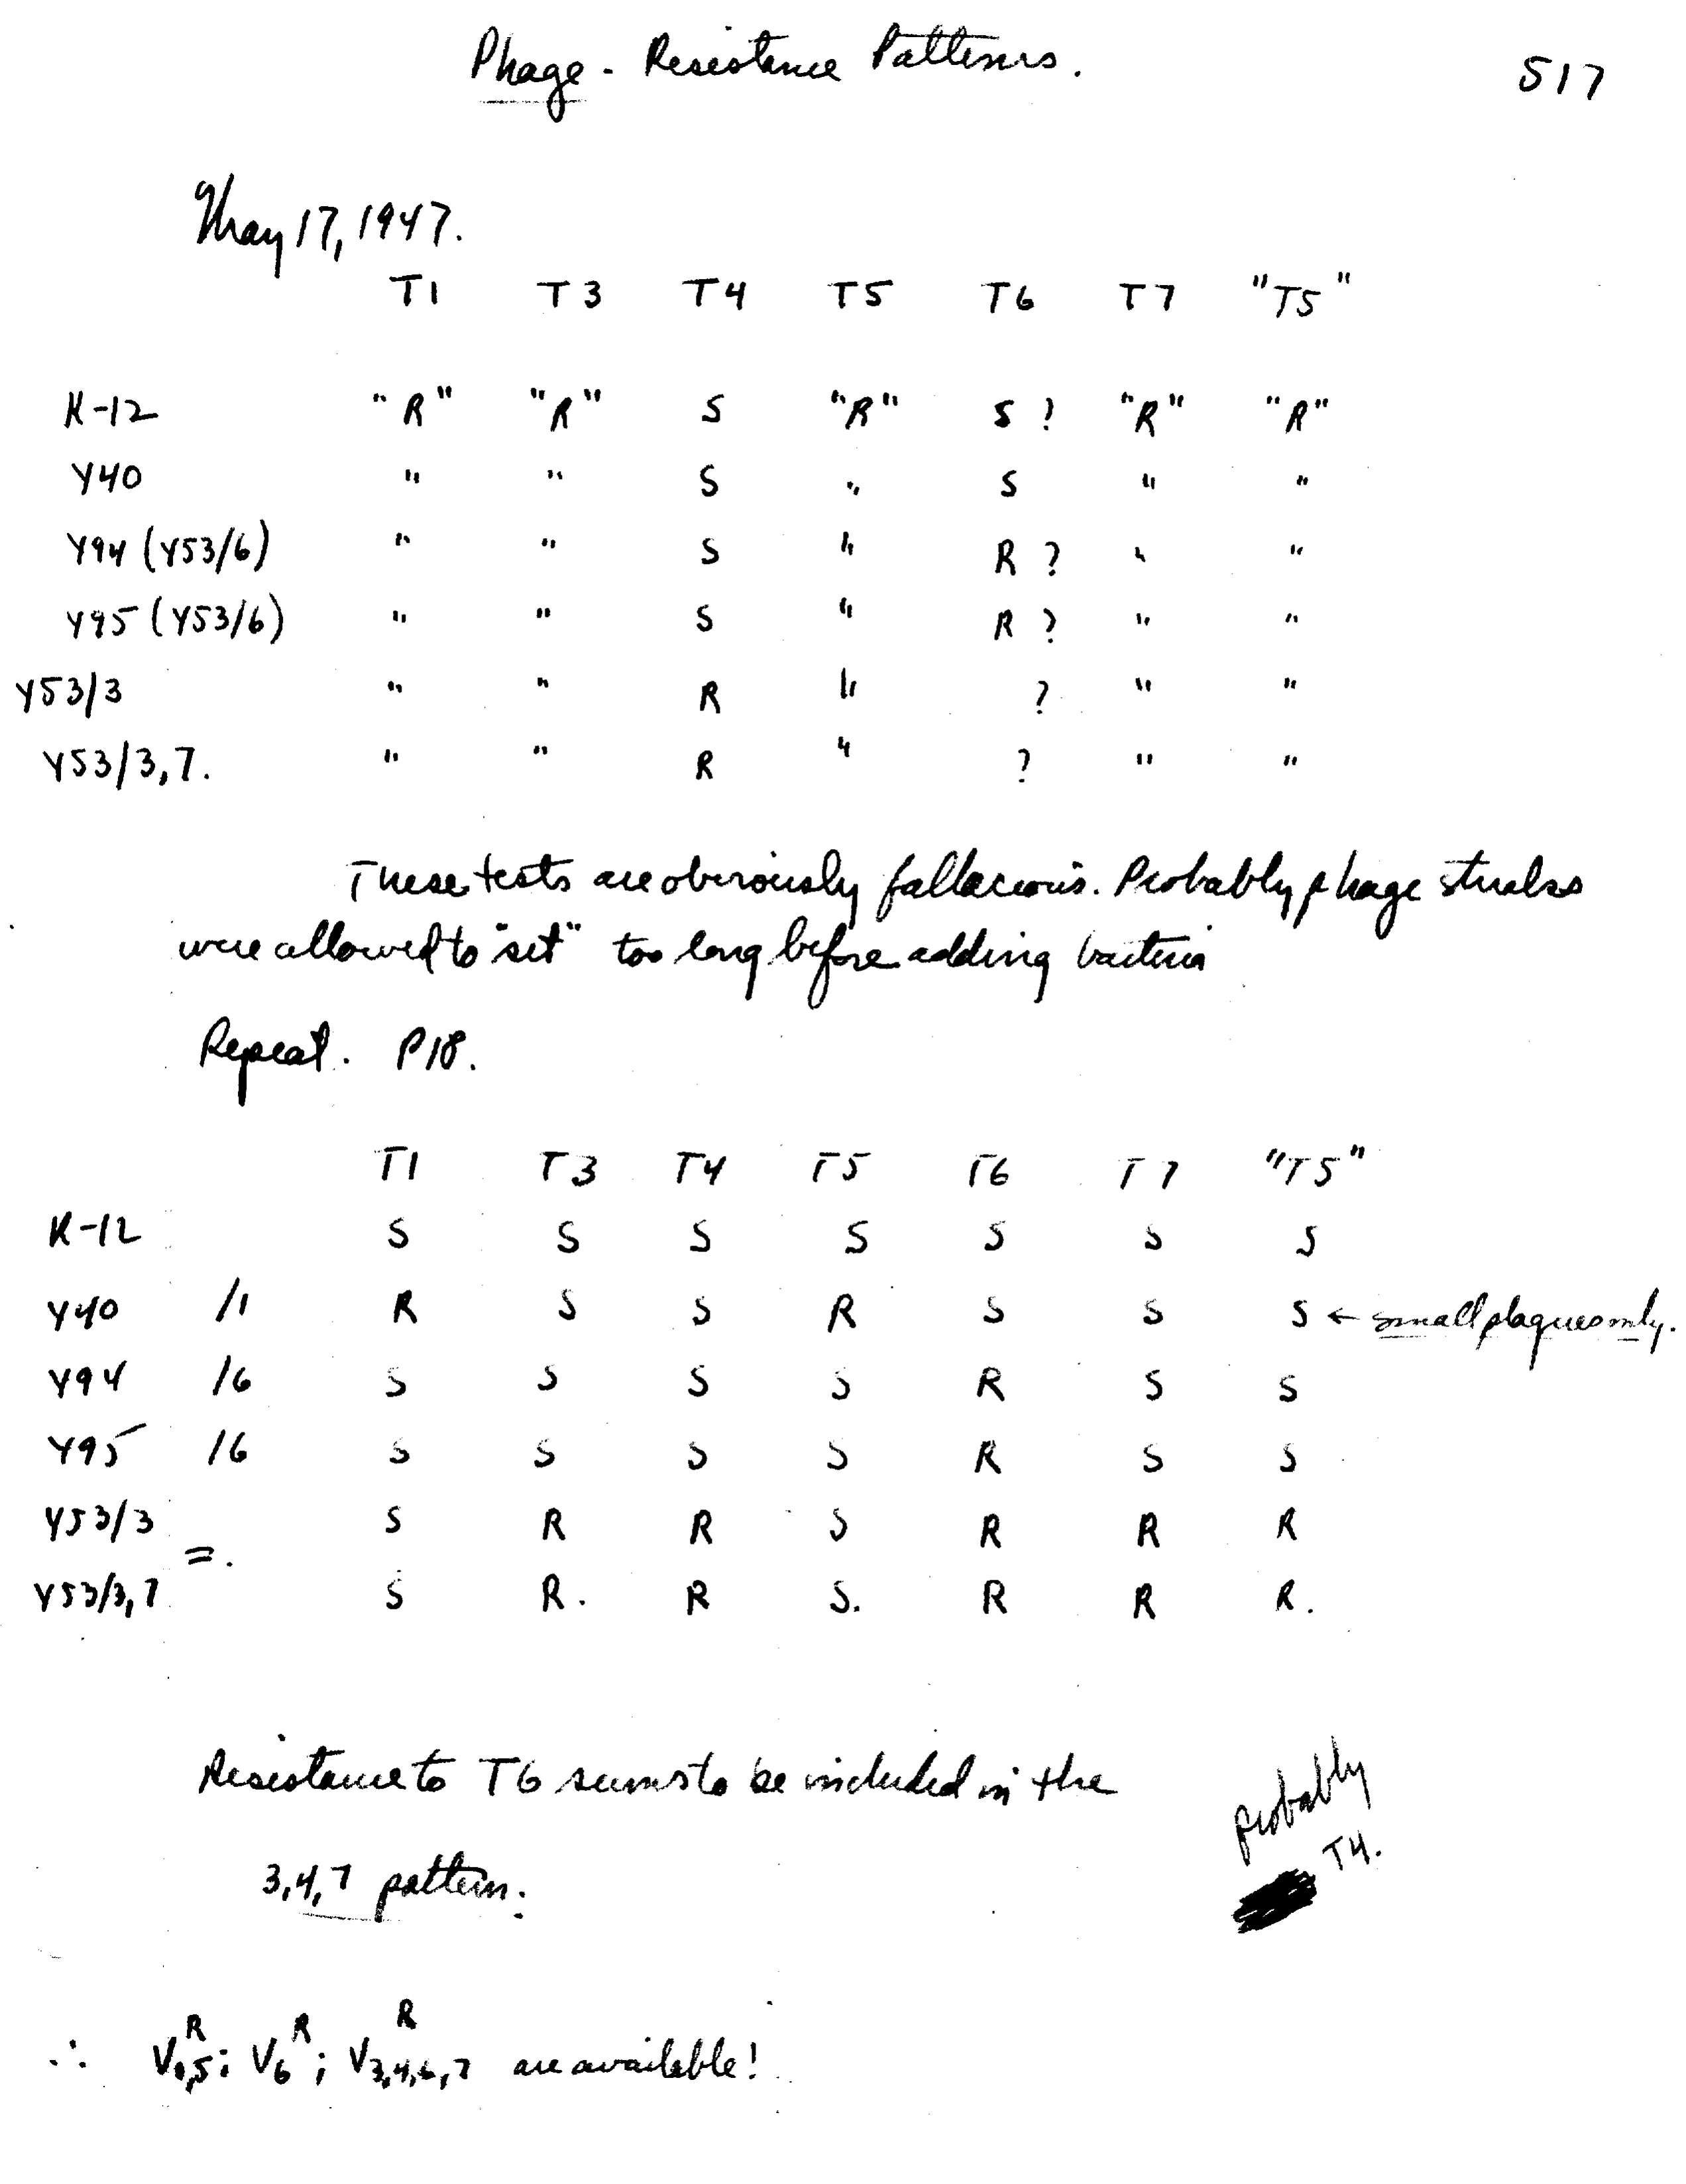 Phage - Resistance Patterns.
517
May 17, 1947.
T1 T3 T4 T5 T6 T7 "T5"
K-12 "R" "R" S "R" S ? "R" "R"
Y40 " " S " S " "
Y94 (Y53/6) " " S " R ? " "
Y95 (Y53/6) " " S " R ? " "
Y53/3 " " R " ? " "
Y53/3,7. " " R " ? " "
These tests are obviously fallacious. Probably phage streaks
were allowed to "set" too long before adding bacteria
Repeat. P18.
T1 T3 T4 T5 T6 T7 "T5"
K-12 S S S S S S S
Y40 /1 R S S R S S S ← small plaques only.
Y94 /6 S S S S R S S
Y95 /6 S S S S R S S
Y53/3 S R R S R R R
=.
Y53/3,7 S R. R S. R R R.
Resistance to T6 seems to be included in the
3,4,7 pattern.
probably
T4.
∴ V1,5^R; V6^R; V3,4,6,7^R are available!